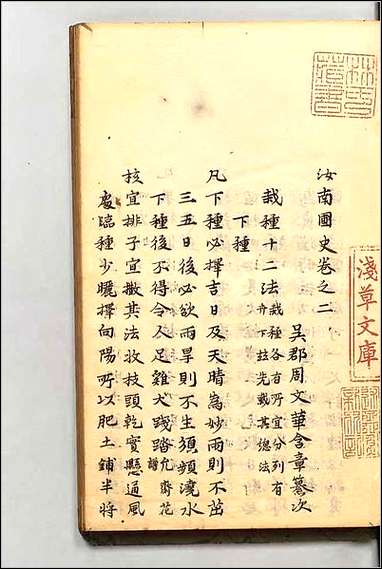 汝南圃史卷之二
吳郡周文華含章纂次
栽種十二法栽種各有所宜分列有
卉下玆先載其總法
下種
凡下種必擇吉日及天晴為妙雨則不茁
三五日後必欲雨旱則不生須頻澆水
下種後不得令人足雞犬踐踏凢齊花
譜
核宜排子宜撒其法收枝頭乾實懸通風
處臨種少曬擇向陽所以肥土鋪半將
淺草文庫
林氏
藏書